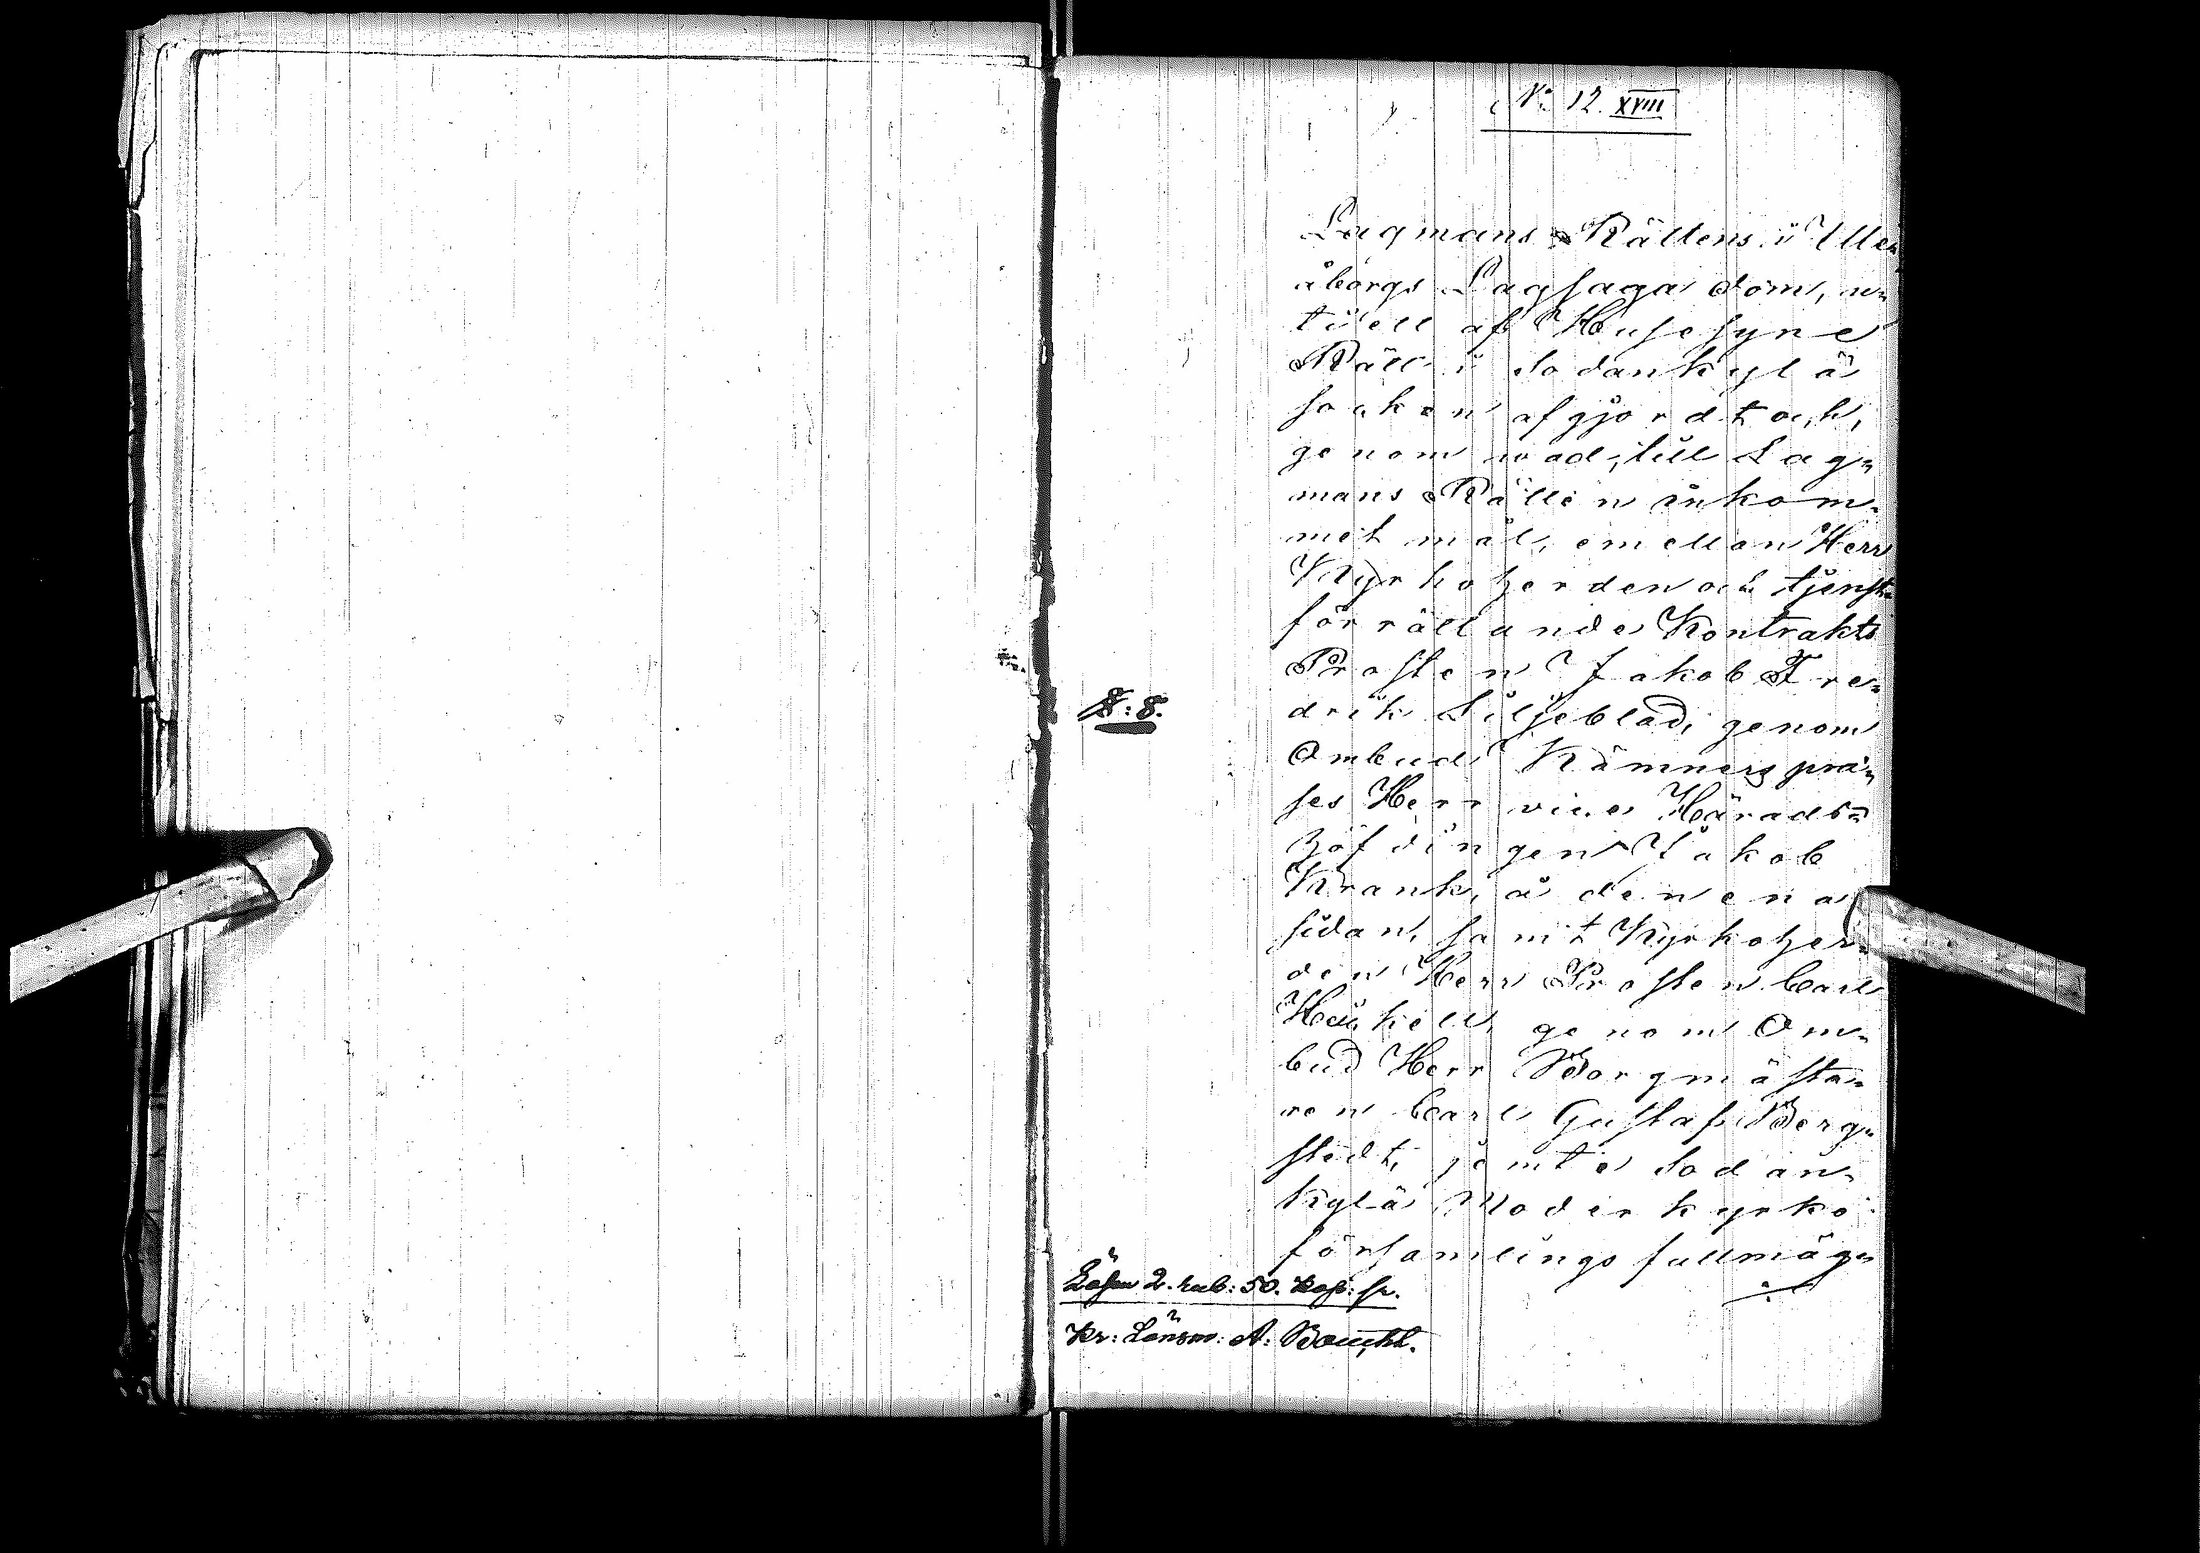 N:o 12. XVIII
Lagmans Rättens i Ule=
åborgs Lagsaga dom, u=
ti ett af Husesyne
Rätt i Sodankylä
socken afgjordt och,
genom wad, till Lag=
mans Rätten inkom=
met mål, emellan Herr
Kyrkoherden och tjenst=
förrättande Kontrakts
Prosten Jakob Fre=
drik Liljeblad, genom
Ombud Kämners præ=
ses Herr vice Härads=
höfdingen Jakob
Krank, å den ena
sidan, samt Kyrkoher=
den Herr Prosten Carl
Heickell, genom Om=
bud Herr Borgmästa=
ren Carl Gustaf Berg=
stedt, jemte Sodan=
kylä Moderkyrko
församlings fullmäg=
S: 8.
Lösen 2. rub: 50. kop: sr.
Kr: Länsm: A: